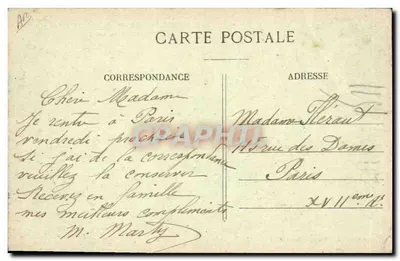 CARTE POSTALE
CORRESPONDANCE
Chère Madame
Je rentre à Paris
vendredi prochain
si j'ai de la correspondance
veuillez la conserver
Recevez en famille
mes meilleurs compliments
M. Marty
ADRESSE
Madame
rue des Dames
Paris
XVIIeme